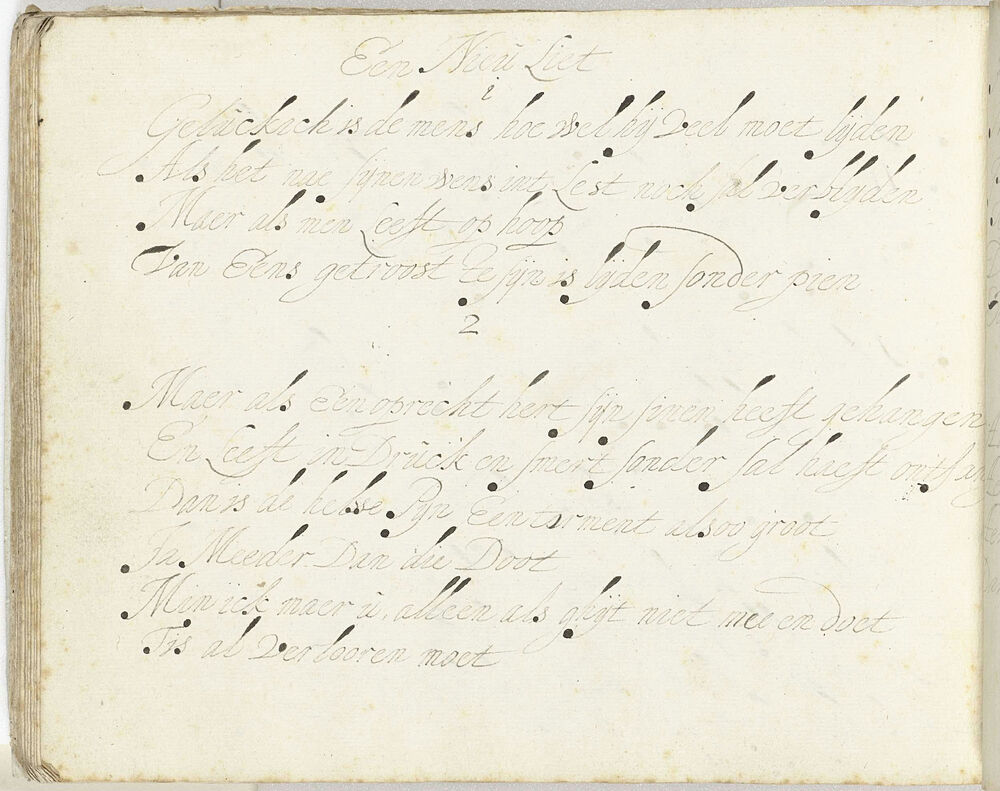 Een Nieŭ Liet
1
Gelŭckich is de mens hoe wel hij veel moet lijden
Als het nae sijnen wens int Lest noch sal verblijden
Maer als men Leeft op hoop
Van Eens getroost te sijn is lijden sonder pien
2
Maer als een oprecht hert sijn sinen heeft gehangen
En Leeft in Drŭck en smert sonder sal haest ontfang
Dan is de helse Pijn Een torment alsoo groot
Ja Meeder Dan die Doot
Min ick maer ŭ alleen als ghijt niet mee en doet
Tis al verlooren moet